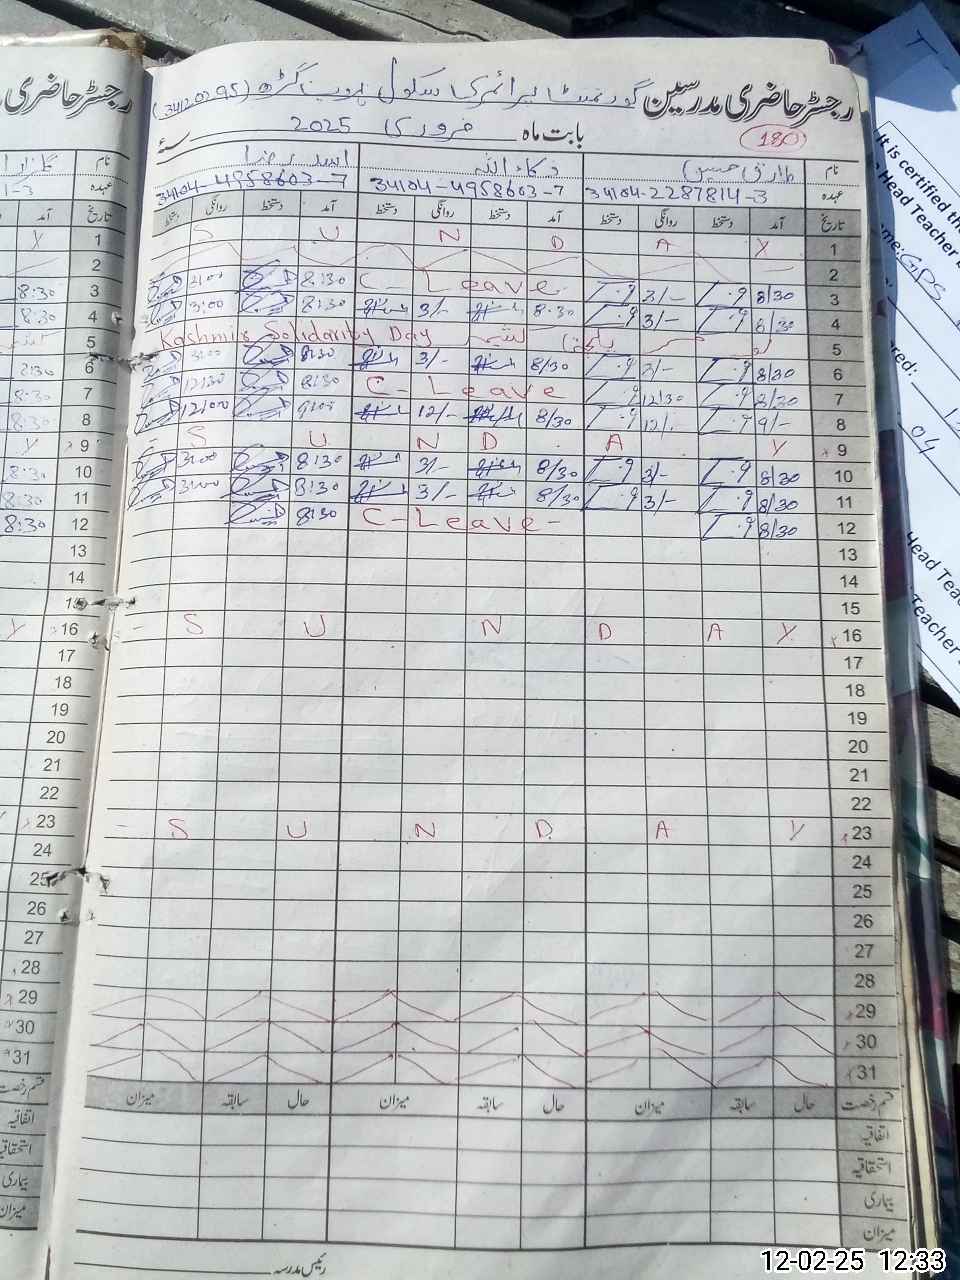 رجسٹر حاضری مدرسین گورنمنٹ پرائمری سکول (34120295)
بابت ماہ فروری 2025ء
180
نام طارق حسین ذکاء اللہ اسد رضا
عہدہ 34104-2287814-3 34104-4958603-7 34104-4958603-7
تاریخ آمد دستخط روانگی دستخط آمد دستخط روانگی دستخط آمد دستخط روانگی دستخط
1 S U N D A Y
2
3 8/30 3/- C-Leave 8:30 3:00
4 8/30 3/- 8:30 3/- 8:30 3:00
5 Kashmir Solidarity Day
6 8/30 3/- 8/30 3/- 8:30 3:00
7 8/30 12/30 C-Leave 8:30 12:30
8 9/- 12/- 8/30 12/- 9:00 12:00
9 S U N D A Y
10 8/30 3/- 8/30 3/- 8:30 3:00
11 8/30 3/- 8/30 3/- 8:30 3:00
12 8/30 C-Leave 8:30
13
14
15
16 S U N D A Y
17
18
19
20
21
22
23 S U N D A Y
24
25
26
27
28
29
30
31
قسم رخصت حال سابقہ میزان حال سابقہ میزان حال سابقہ میزان
اتفاقیہ
استحقاقیہ
بیماری
میزان
رئیس مدرسہ
رجسٹر حاضری
نام
عہدہ
تاریخ آمد
1 Y
2
3 8:30
4 8:30
5
6
7 8:30
8 8:30
9 Y
10 8:30
11 8:30
12 8:30
13
14
15
16 Y
17
18
19
20
21
22
23
24
25
26
27
28
29
30
31
قسم رخصت
اتفاقیہ
استحقاقیہ
بیماری
میزان
It is certified th
Head Teacher
GPS
red:
04
Head Teac
Teacher
12-02-25 12:33